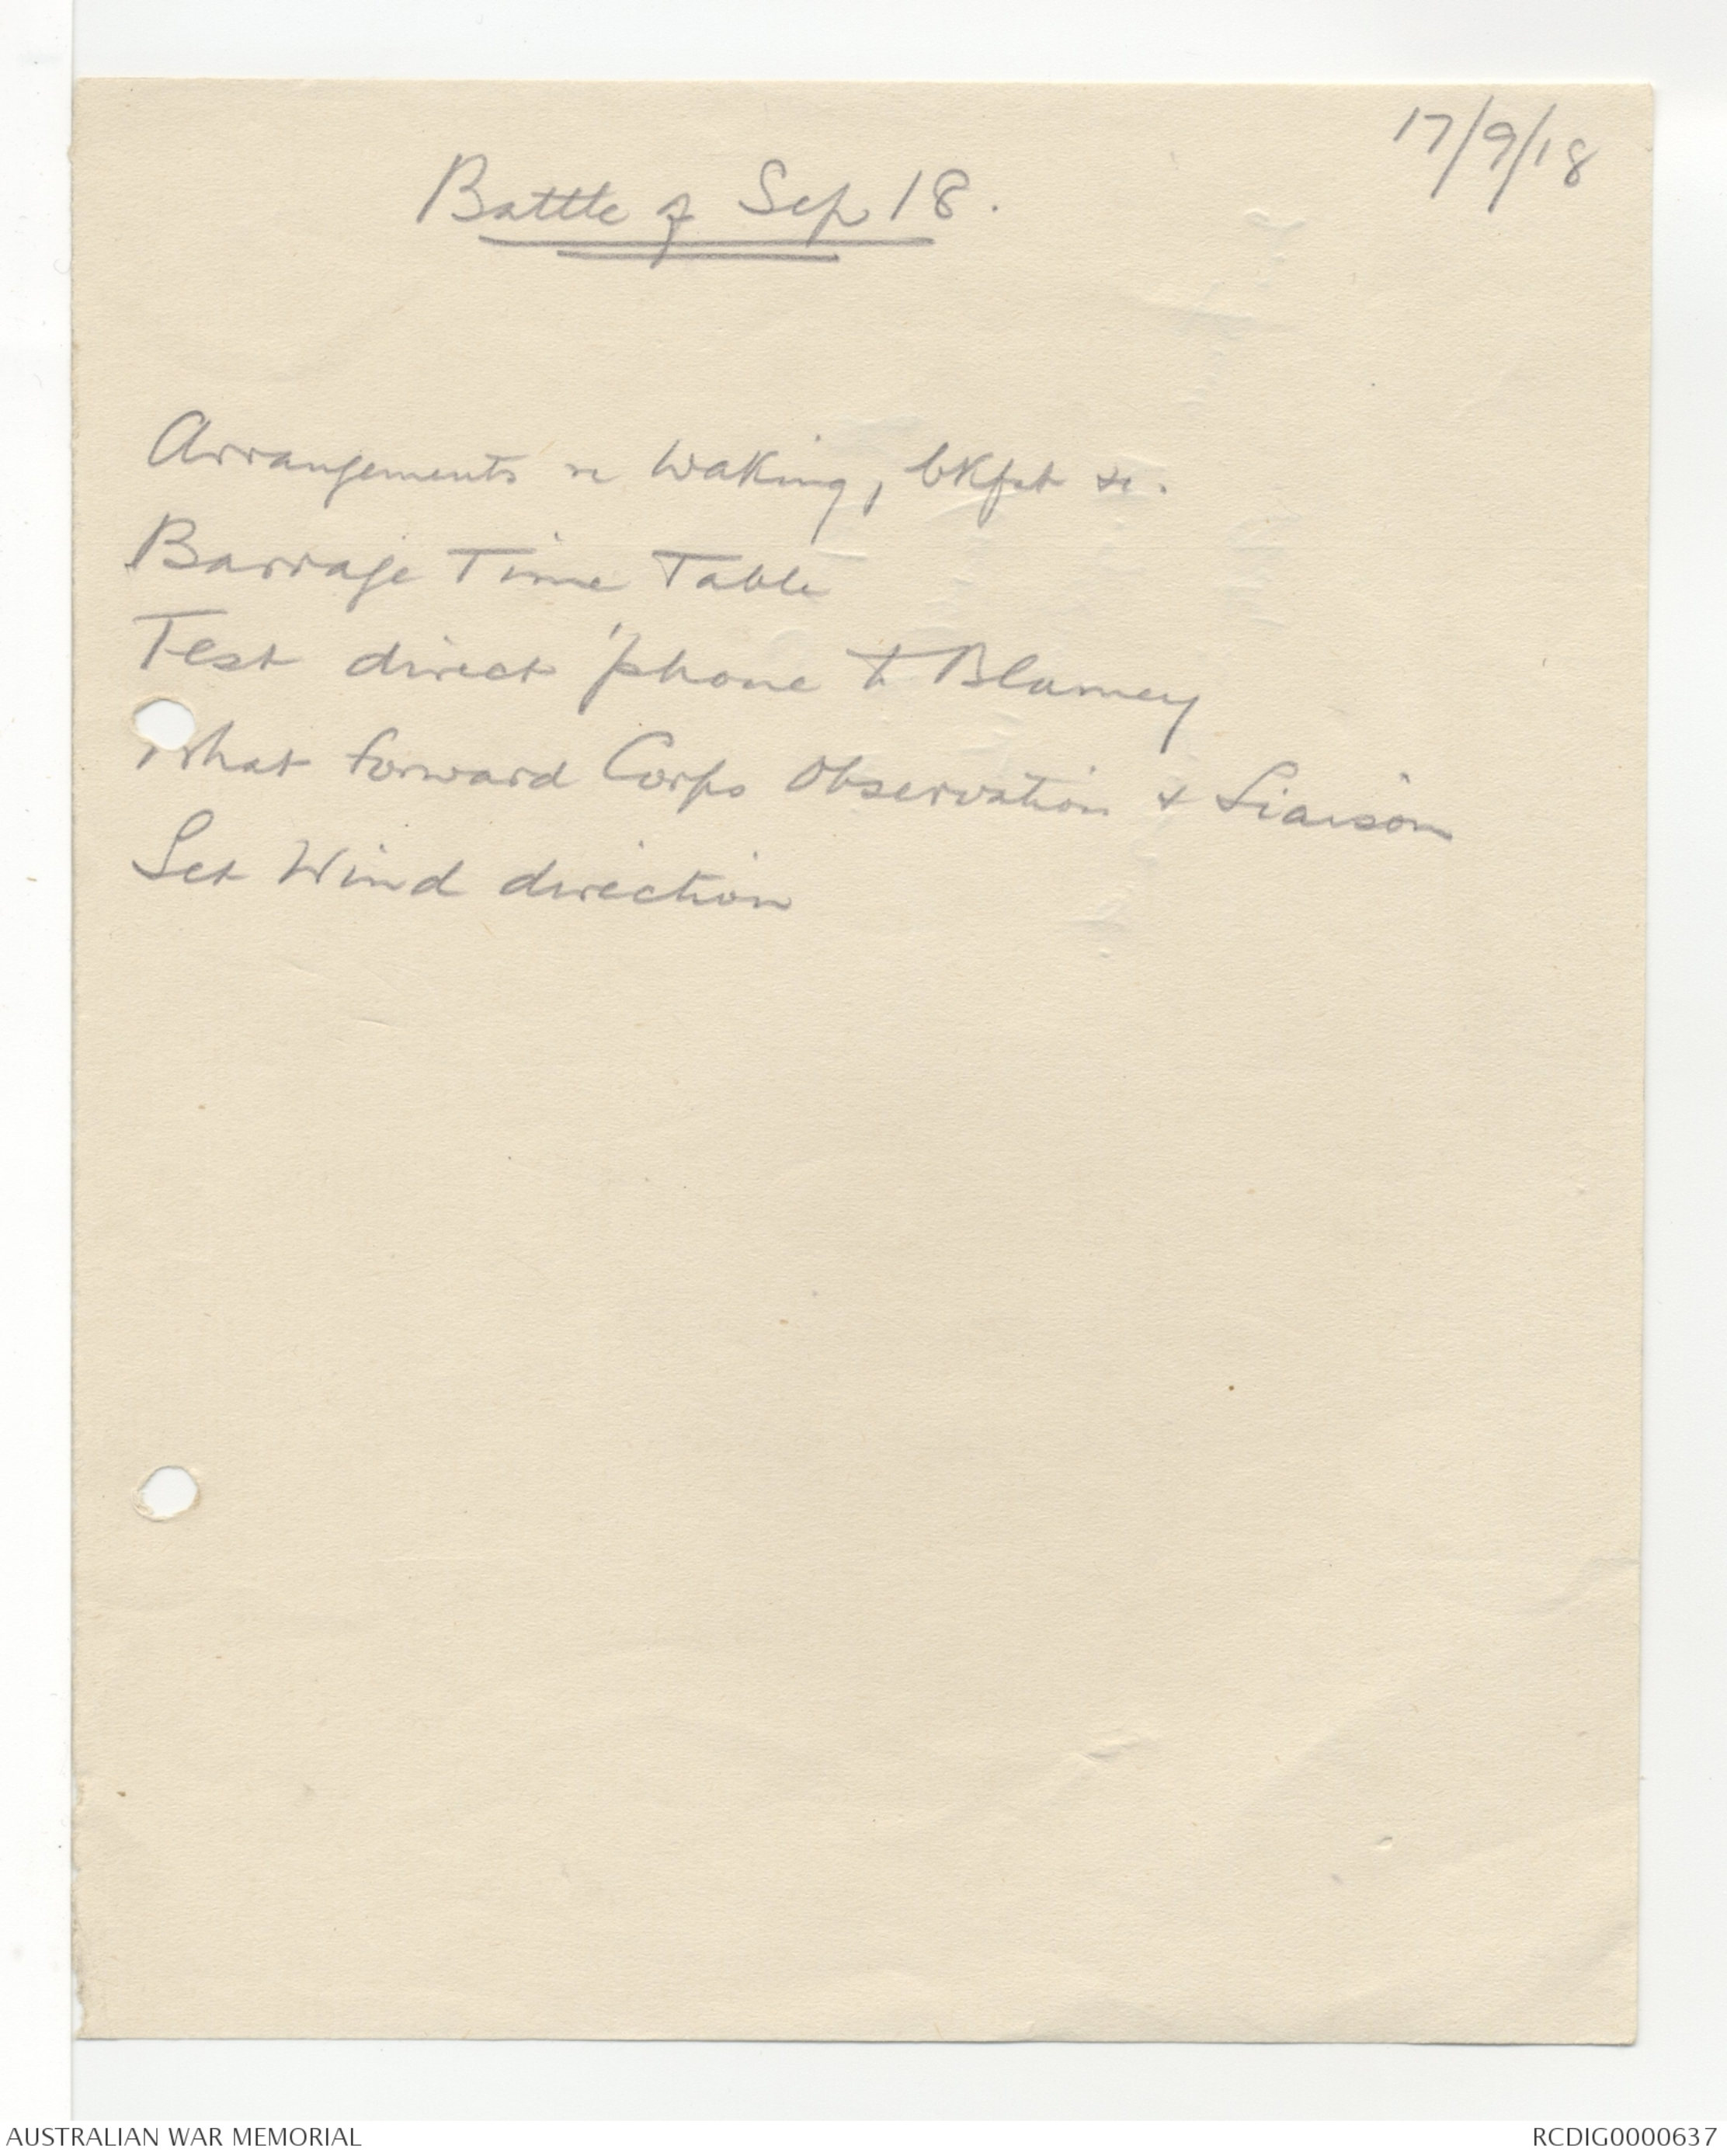 17/9/18
Battle of Sep 18.
Arrangements re waking, bkfst &c.
Barrage Time Table
Test direct 'phone to Blamey
What forward Corps Observation & Liaison
Set Wind direction
AUSTRALIAN WAR MEMORIAL
RCDIG0000637